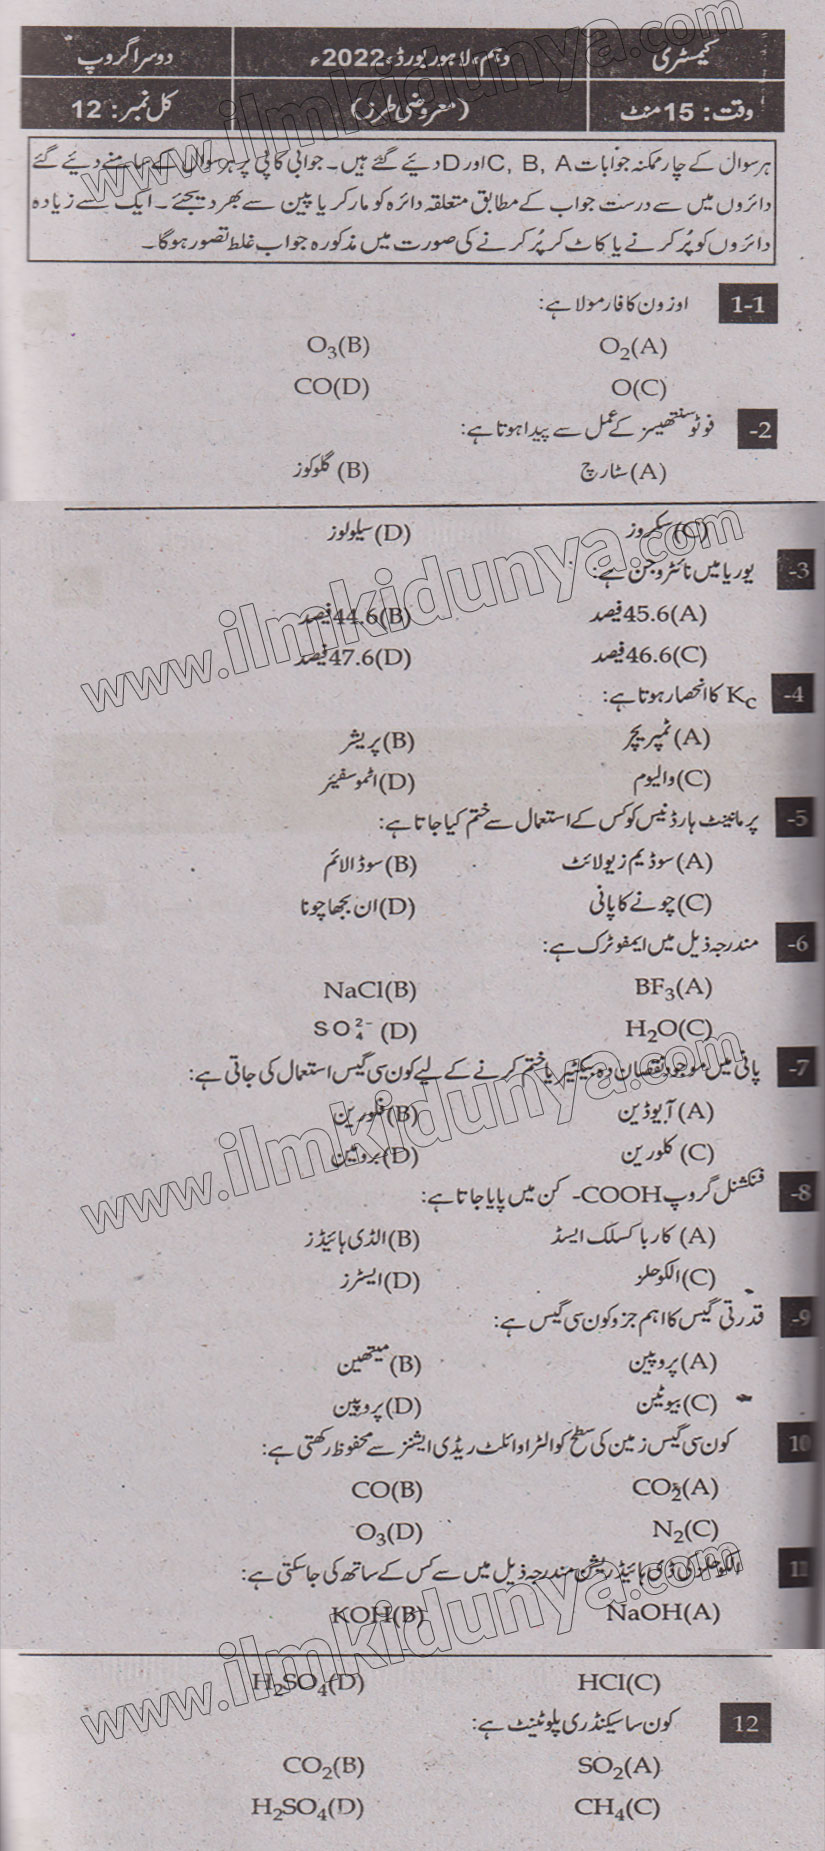 کیمسٹری دہم، لاہور بورڈ، 2022ء دوسرا گروپ
وقت: 15 منٹ (معروضی طرز) کل نمبر: 12
ہر سوال کے چار ممکنہ جوابات C, B, A اور D دیئے گئے ہیں۔ جوابی کاپی پر ہر سوال کے سامنے دیئے گئے
دائروں میں سے درست جواب کے مطابق متعلقہ دائرہ کو مارکر یا پین سے بھر دیجئے۔ ایک سے زیادہ
دائروں کو پُر کرنے یا کاٹ کر پُر کرنے کی صورت میں مذکورہ جواب غلط تصور ہوگا۔
1-1 اوزون کا فارمولا ہے:
O₂(A) O₃(B)
O(C) CO(D)
-2 فوٹوسنتھیسز کے عمل سے پیدا ہوتا ہے:
(A) سٹارچ (B) گلوکوز
(C) سکروز (D) سیلولوز
-3 یوریا میں نائٹروجن ہے:
(A) 45.6 فیصد (B) 44.6 فیصد
(C) 46.6 فیصد (D) 47.6 فیصد
-4 Kc کا انحصار ہوتا ہے:
(A) ٹمپریچر (B) پریشر
(C) والیوم (D) اٹموسفیئر
-5 پرمانینٹ ہارڈنیس کو کس کے استعمال سے ختم کیا جاتا ہے:
(A) سوڈیم زیولائٹ (B) سوڈا لائم
(C) چونے کا پانی (D) ان بجھا چونا
-6 مندرجہ ذیل میں ایمفوٹرک ہے:
BF₃(A) NaCl(B)
H₂O(C) SO₄²⁻ (D)
-7 پانی میں موجود نقصان دہ بیکٹیریا ختم کرنے کے لیے کون سی گیس استعمال کی جاتی ہے:
(A) آیوڈین (B) فلورین
(C) کلورین (D) برومین
-8 فنکشنل گروپ COOH- کن میں پایا جاتا ہے:
(A) کاربا کسلک ایسڈ (B) الڈی ہائیڈز
(C) الکوحلز (D) ایسٹرز
-9 قدرتی گیس کا اہم جزو کون سی گیس ہے:
(A) پروپین (B) میتھین
(C) بیوٹین (D) پروپین
10 کون سی گیس زمین کی سطح کو الٹراوائلٹ ریڈی ایشنز سے محفوظ رکھتی ہے:
CO₂(A) CO(B)
N₂(C) O₃(D)
11 الکوحلز کی ڈی ہائیڈریشن مندرجہ ذیل میں سے کس کے ساتھ کی جاسکتی ہے:
NaOH(A) KOH(B)
HCl(C) H₂SO₄(D)
12 کون سا سیکنڈری پلوٹینٹ ہے:
SO₂(A) CO₂(B)
CH₄(C) H₂SO₄(D)
www.ilmkidunya.com
www.ilmkidunya.com
www.ilmkidunya.com
www.ilmkidunya.com